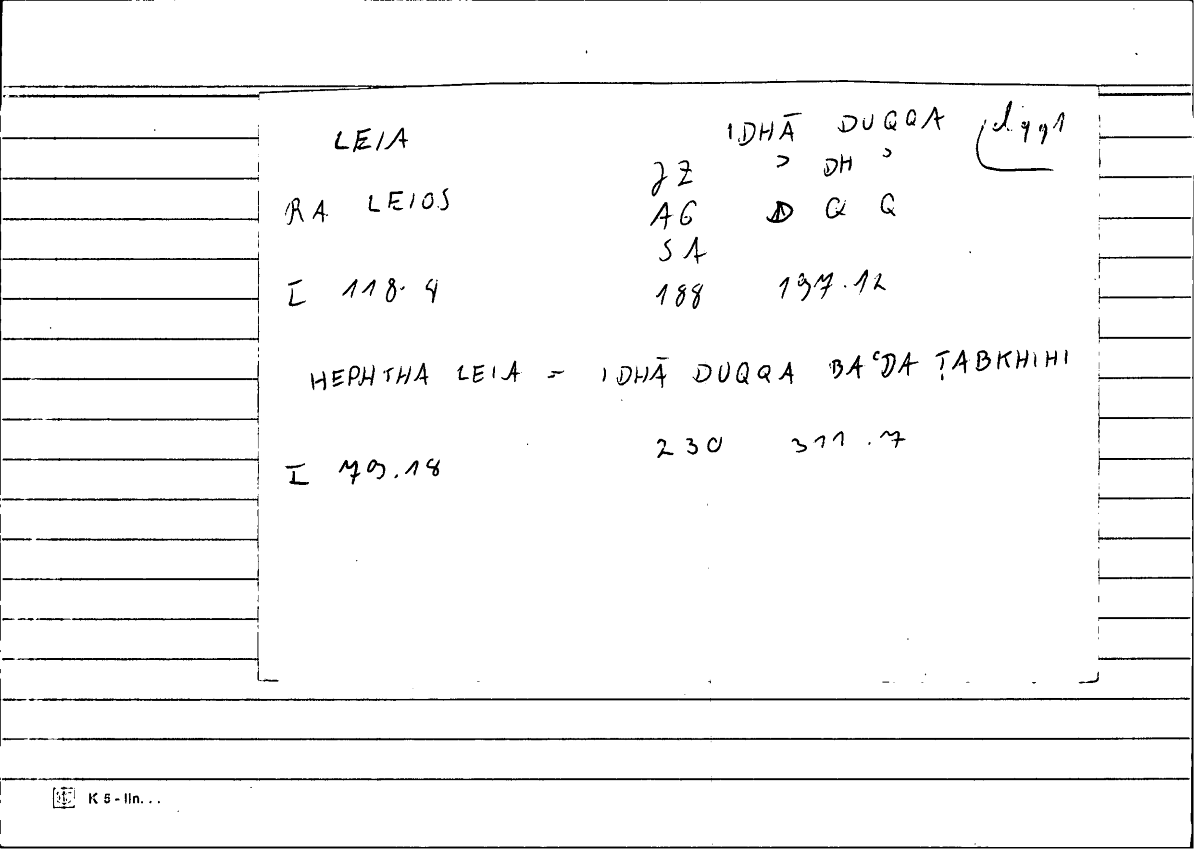 LEIA IDHĀ DUQQA dqq1
JZ ʾ DH ʾ
RA LEIOS AG D Q Q
SA
I 118.4 188 197.12
HEPHTHA LEIA = IDHĀ DUQQA BAʿDA ṬABKHIHI
I 79.18 230 311.7
K 5 - lin...